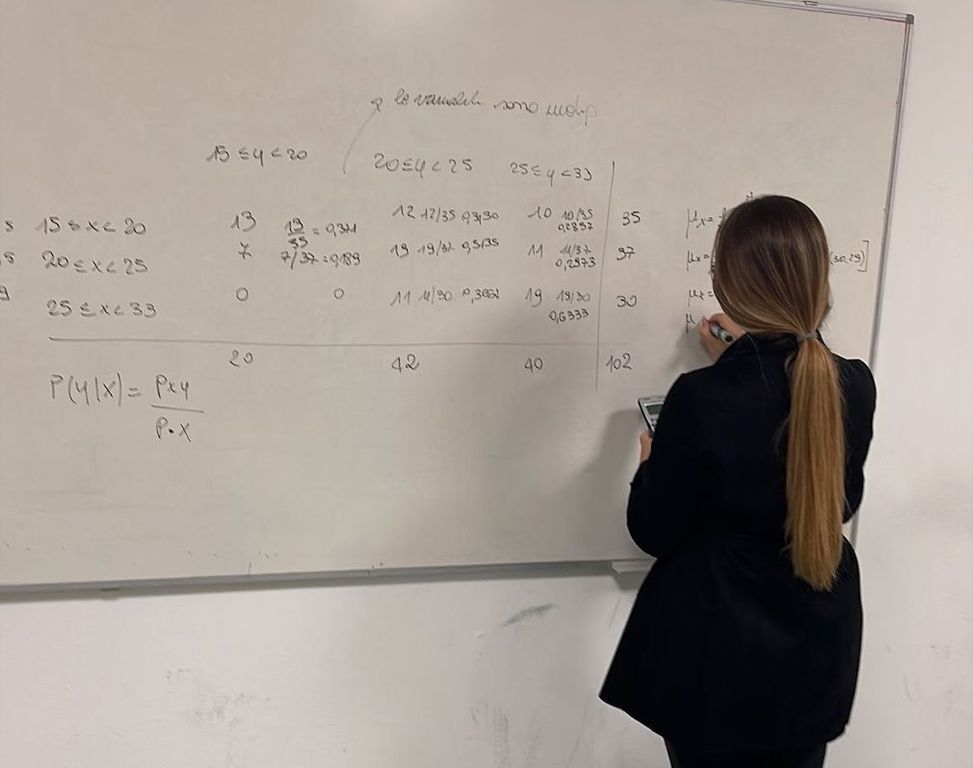 le variabili sono indip
15 ≤ y < 20 20 ≤ y < 25 25 ≤ y < 33
15 ≤ x < 20 13 13/35 = 0,371 12 12/35 0,3430 10 10/35 0,2857 35
20 ≤ x < 25 7 7/37 = 0,189 19 19/37 0,5135 11 11/37 0,2973 37
25 ≤ x < 33 0 0 11 11/30 0,3662 19 19/30 0,6333 30
20 42 40 102
P(y|x) = Pxy / P.x
μx =
μx = (30,29)]
μx =
μ